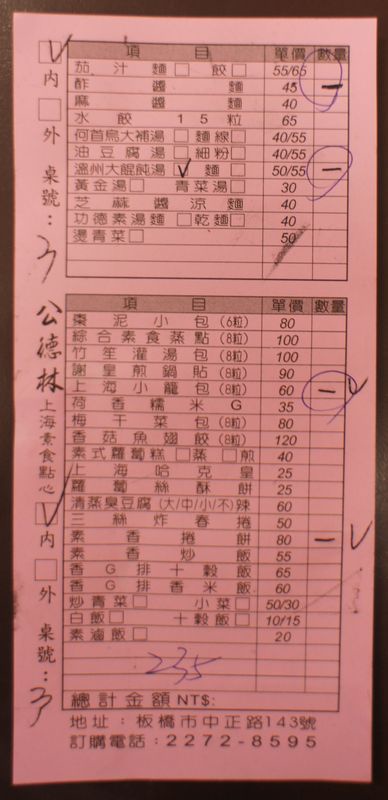 項目 單價 數量
茄汁麵□ 餃□ 55/65
酢醬麵 45 一
麻醬麵 40
水餃15粒 65
何首烏大補湯□麵線□ 40/55
油豆腐湯□細粉□ 40/55
溫州大餛飩湯☑麵□ 50/55 一
黃金湯□ 青菜湯□ 30
芝麻醬涼麵 40
功德素湯麵□乾麵□ 40
燙青菜□ 50
項目 單價 數量
棗泥小包(6粒) 80
綜合素食蒸點(8粒) 100
竹笙灌湯包(8粒) 100
謝皇煎鍋貼(8粒) 90
上海小籠包(8粒) 60 一
荷香糯米G 35
梅干菜包(8粒) 80
香菇魚翅餃(8粒) 120
素式蘿蔔糕□蒸□煎 40
上海哈克皇 25
蘿蔔絲酥餅 25
清蒸臭豆腐(大/中/小/不)辣 60
三絲炸春捲 50
素香捲餅 80 一
素香炒飯 55
香G排十穀飯 65
香G排香米飯 60
炒青菜□ 小菜□ 50/30
白飯□ 十穀飯□ 10/15
素滷飯□ 20
235
總計金額NT$:
地址:板橋市中正路143號
訂購電話:2272-8595
☑內□外 桌號:3
公德林 上海素食點心
☑內□外 桌號:3